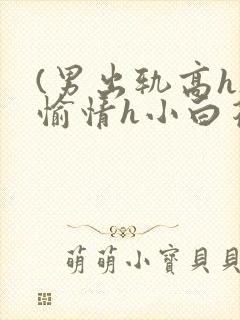 (男出轨高h
愉情h小白
萌萌小寶貝貝